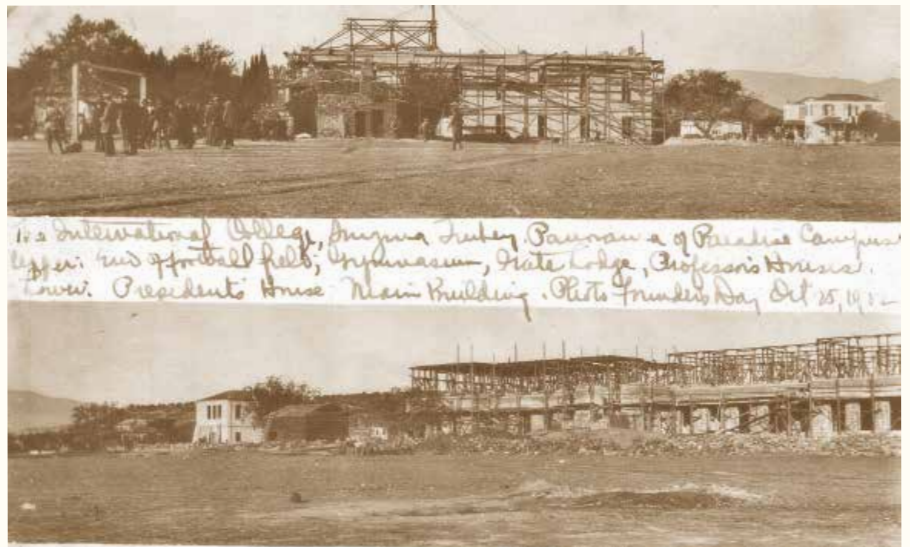 International College, Smyrna Turkey. Panorama of Paradise Campus
Upper: End of football field; Gymnasium, Gate Lodge, Professors Houses.
Lower. Presidents House Main Building. Photo Founders Day Oct 25,